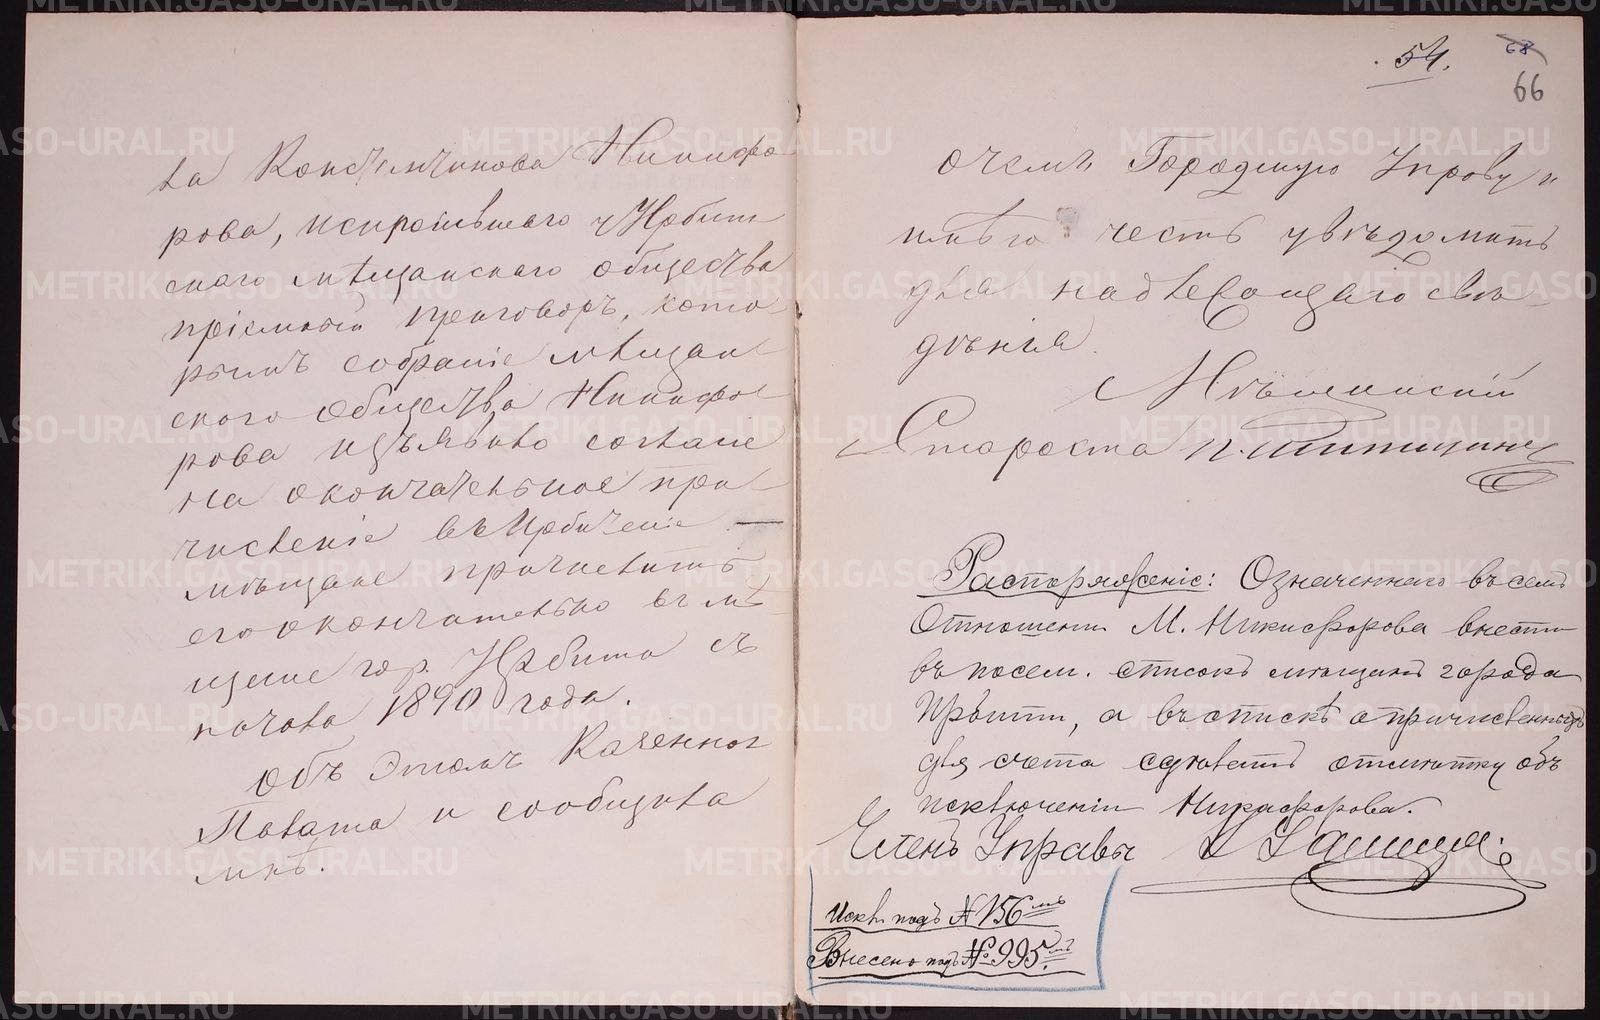 ла Константинова Никифо
рова, испросившаго у Ирбит
скаго мѣщанскаго общества
пріемный приговоръ, кото-
рымъ собраніе мѣщан
скаго общества Никифо
рова изъявило согласіе
на окончательное при
численіе въ Ирбитскіе
мѣщане причислить
его окончательно въ мѣ
щане гор. Ирбита съ
начала 1890 года.
Объ этомъ Казенноя
Палата и сообщила
мнѣ.
54.
68
66
о чемъ Городскую Управу и
имѣю честь увѣдомить
для надлежащаго свѣ-
дѣнія.
Мѣщанскій
Староста П.
Распоряженіе: Означеннаго въ семъ
Отношеніи М. Никифорова внести
въ посем. списокъ мѣщанъ города
Ирбити, а въ спискѣ о причисленныхъ
для счета сдѣлать отмѣтку объ
исключеніи Никифорова.
Членъ Управы
Искл. подъ № 156 мъ
Внесенъ подъ № 995 мъ
METRIKI.GASO-URAL.RU